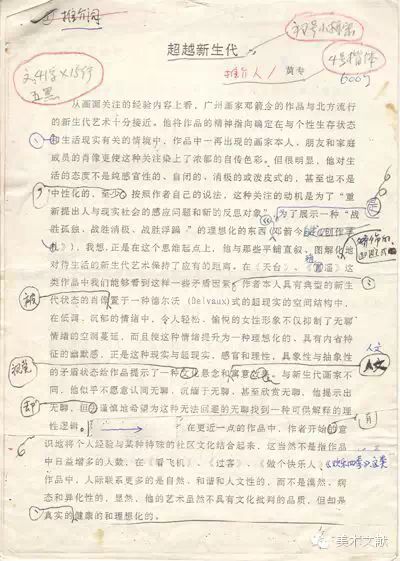 推介词
超越新生代
初号小标宋
推介人/黄专
4号楷体
6009
五黑
从画面关注的经验内容上看,广州画家邓箭今的作品与北方流行
的新生代艺术十分接近。他将作品的精神指向确定在与个性生存状态
和生活现实有关的情境中,作品中一再出现的画家本人、朋友和家庭
成员的肖像更使这种关注染上了浓郁的自传色彩。但很明显,他对生
活的态度不是纯感官性的、自闭的、消极的或泼皮式的,甚至也不是
中性化的,至少,按照作者自己的说法,这种关注的动机是为了“重
新提出人与现实社会的感应问题和新的反思对象”,为了展示一种“战
胜孤独、战胜消极、战胜浮躁”的理想化的东西(邓箭今
》),我想,正是在这个思维起点上,他与那些平铺直叙、图解化
对待生活的新生代艺术保持了应有的距离。在《天台》、《 道》这
类作品中我们能够看到这样一些矛盾因素:作者本人具有典型的新生
代状态的肖像 置于一种德尔沃(Delvaux)式的超现实的空间结构中,
在低调、沉郁的情绪中,令人轻松、愉悦的女性形象不仅抑制了无聊
情绪的空洞蔓延,而且使这种情绪提升为一种理想化的、具有内省特
征的幽默感,正是这种现实与超现实、感官和理性、具象性与抽象性
的矛盾状态给作品提示了一种文化悬念和寓意 。与新生代画家不
同,他似乎不愿意认同无聊,沉缅于无聊,甚至欣赏无聊,他提示出
无聊,但 谨慎地希望为这种无法回避的无聊找到一种可供解释的理
性逻辑。
在更近一点的作品中,作者开始 意
识地将个人经验与某种特殊的社区文化结合起来,这当然不是指作品
中日益增多的人数,在《看飞机》、《过客》、《做个快乐人》
《欢乐四季》这类
作品中,人际联系更多的是自然、和谐和人文性的,而不是漠然、病
态和异化性的,显然,他的艺术虽然不具有文化批判的品质,但却是
真实的健康的和理想化的。
被
视觉
却
人文
有
美术文献